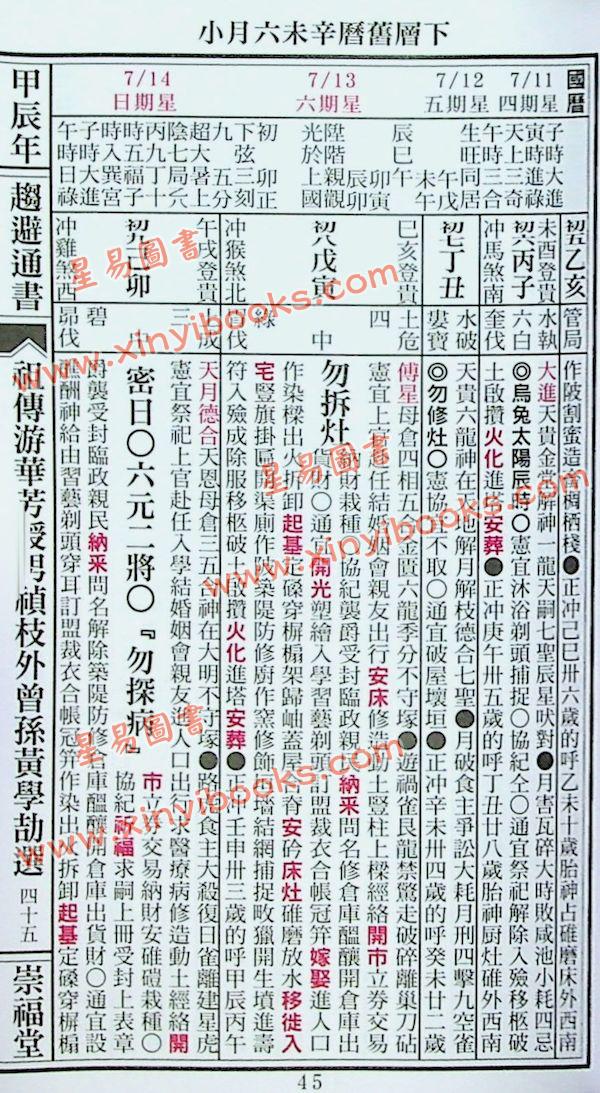 下層舊曆辛未六月小
國曆
7/11
星期四
7/12
星期五
7/13
星期六
7/14
星期日
子時大進
寅時進祿
天上三奇
午時三合
生旺同居
光於上國
子時大進
午時日祿
初五乙亥
未酉登貴
初六丙子
沖馬煞南
初七丁丑
巳亥登貴
初八戊寅
沖猴煞北
午戌登貴
初九己卯
沖雞煞西
管局
水執
六白
奎伐
水破
婁寶
土危
四
中
綠
胃伐
三成
土中
碧
昴伐
作陂割蜜造畜椆栖棧●正冲己巳卅六歲的呼乙未十歲胎神占碓磨床外西南
大進天貴金堂解神一龍天嗣七聖辰星吠對●月害瓦碎大時敗咸池小耗四忌
◎烏兔太陽辰時○憲宜沐浴剃頭捕捉○協紀仝○通宜祭祀解除入殮移柩破
土啟攢火化進塔安葬●正冲庚午卅五歲的呼丁丑廿八歲胎神厨灶碓外西南
天貴六龍神在天地解月解枝德合七聖●月破食主爭訟大耗月刑四擊九空雀
◎勿修灶○憲協紀不取○通宜破屋壞垣●正冲辛未卅四歲的呼癸未廿二歲
傅星母倉四相五合金匱六龍季分不守塚●遊禍雀艮龍禁驚走破碎離巢刀砧
憲宜上官赴任結婚姻會親友出行安床修造動土豎柱上樑經絡開市立券交易
勿拆灶 納財栽種○協紀襲爵受封臨政親民納采問名修倉庫醞釀開倉庫出
貨財○通宜開光塑繪入學習藝剃頭訂盟裁衣合帳冠笄嫁娶進人口
作染樑出火拆卸起基定磉穿榍榻架歸岫蓋屋合脊安砛床灶碓磨放水移徙入
宅豎旗掛匾開渠厠作陂築隄防修廚作窯修飾垣墻結網捕捉畋獵開生墳進壽
符入殮成除服移柩破土啟攢火化進塔安葬●正沖壬申卅三歲的呼甲辰丙午
天月德合天恩母倉三五合神在大明不守塚●路空食主大殺復日雀離建星虎
憲宜祭祀上官赴任入學結婚姻會親友進人口出行求醫療病修造動土經絡開
密日○六元二將○『勿探病』
市立券交易納財安碓磑栽種○
協紀祈福求嗣上冊受封上表章
襲爵受封臨政親民納采問名解除築隄防修倉庫醞釀開倉庫出貨財○通宜設
醮酬神給由習藝剃頭穿耳訂盟裁衣合帳冠笄作染出火拆卸起基定磉穿榍榻
甲辰年
趨避通書
祖傳游華芳授男禎枝外曾孫黃學劼選
四十五
崇福堂
45
星易圖書
www.xinyibooks.com
星易圖書
www.xinyibooks.com
星易圖書
www.xinyibooks.com
星易圖書
www.xinyibooks.com